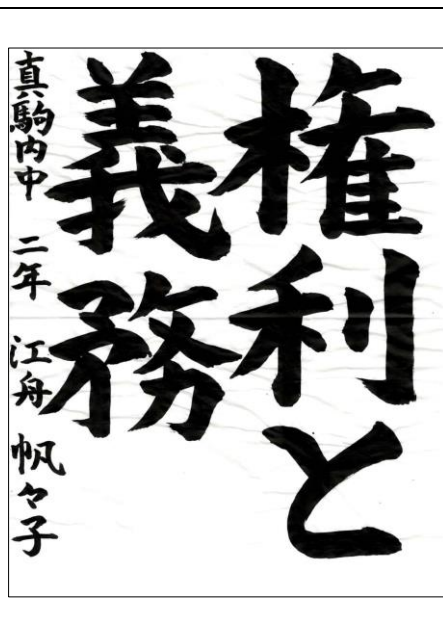 権利と
義務
真駒内中 二年 江舟 帆々子